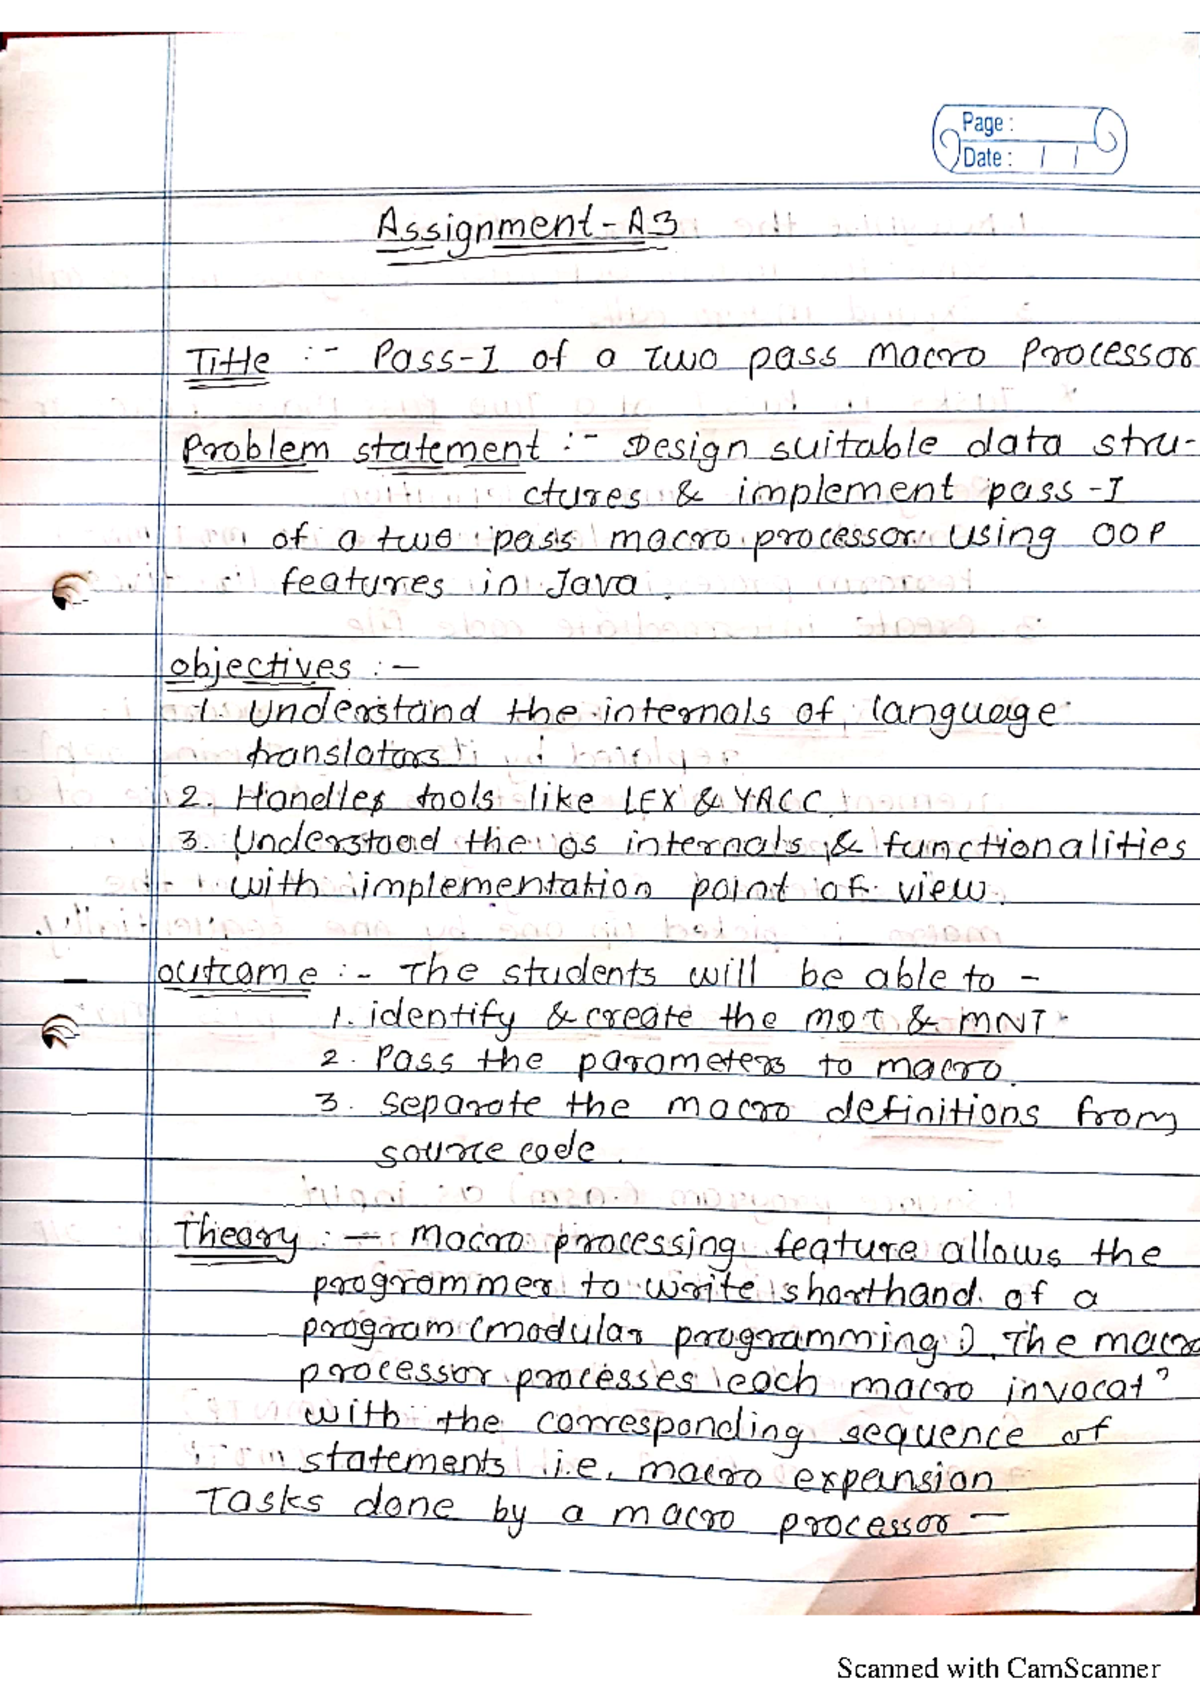 Page :
Date : / /
Assignment - A3
Title :- Pass-I of a Two pass macro Processor
Problem statement :- Design suitable data stru-
ctures & implement pass-I
of a two pass macro processor using OOP
features in Java.
objectives :-
1. Understand the internals of language
translators
2. Handles tools like LEX & YACC.
3. Understand the os internals & functionalities
with implementation point of view.
outcome :- The students will be able to -
1. identify & create the MDT & MNT
2. Pass the parameters to macro.
3. Separate the macro definitions from
source code.
Theory :- Macro processing feature allows the
programmer to write shorthand of a
program (modular programming). The macro
processor processes each macro invocat?
with the corresponding sequence of
statements i.e. macro expansion
Tasks done by a macro processor -
Scanned with CamScanner